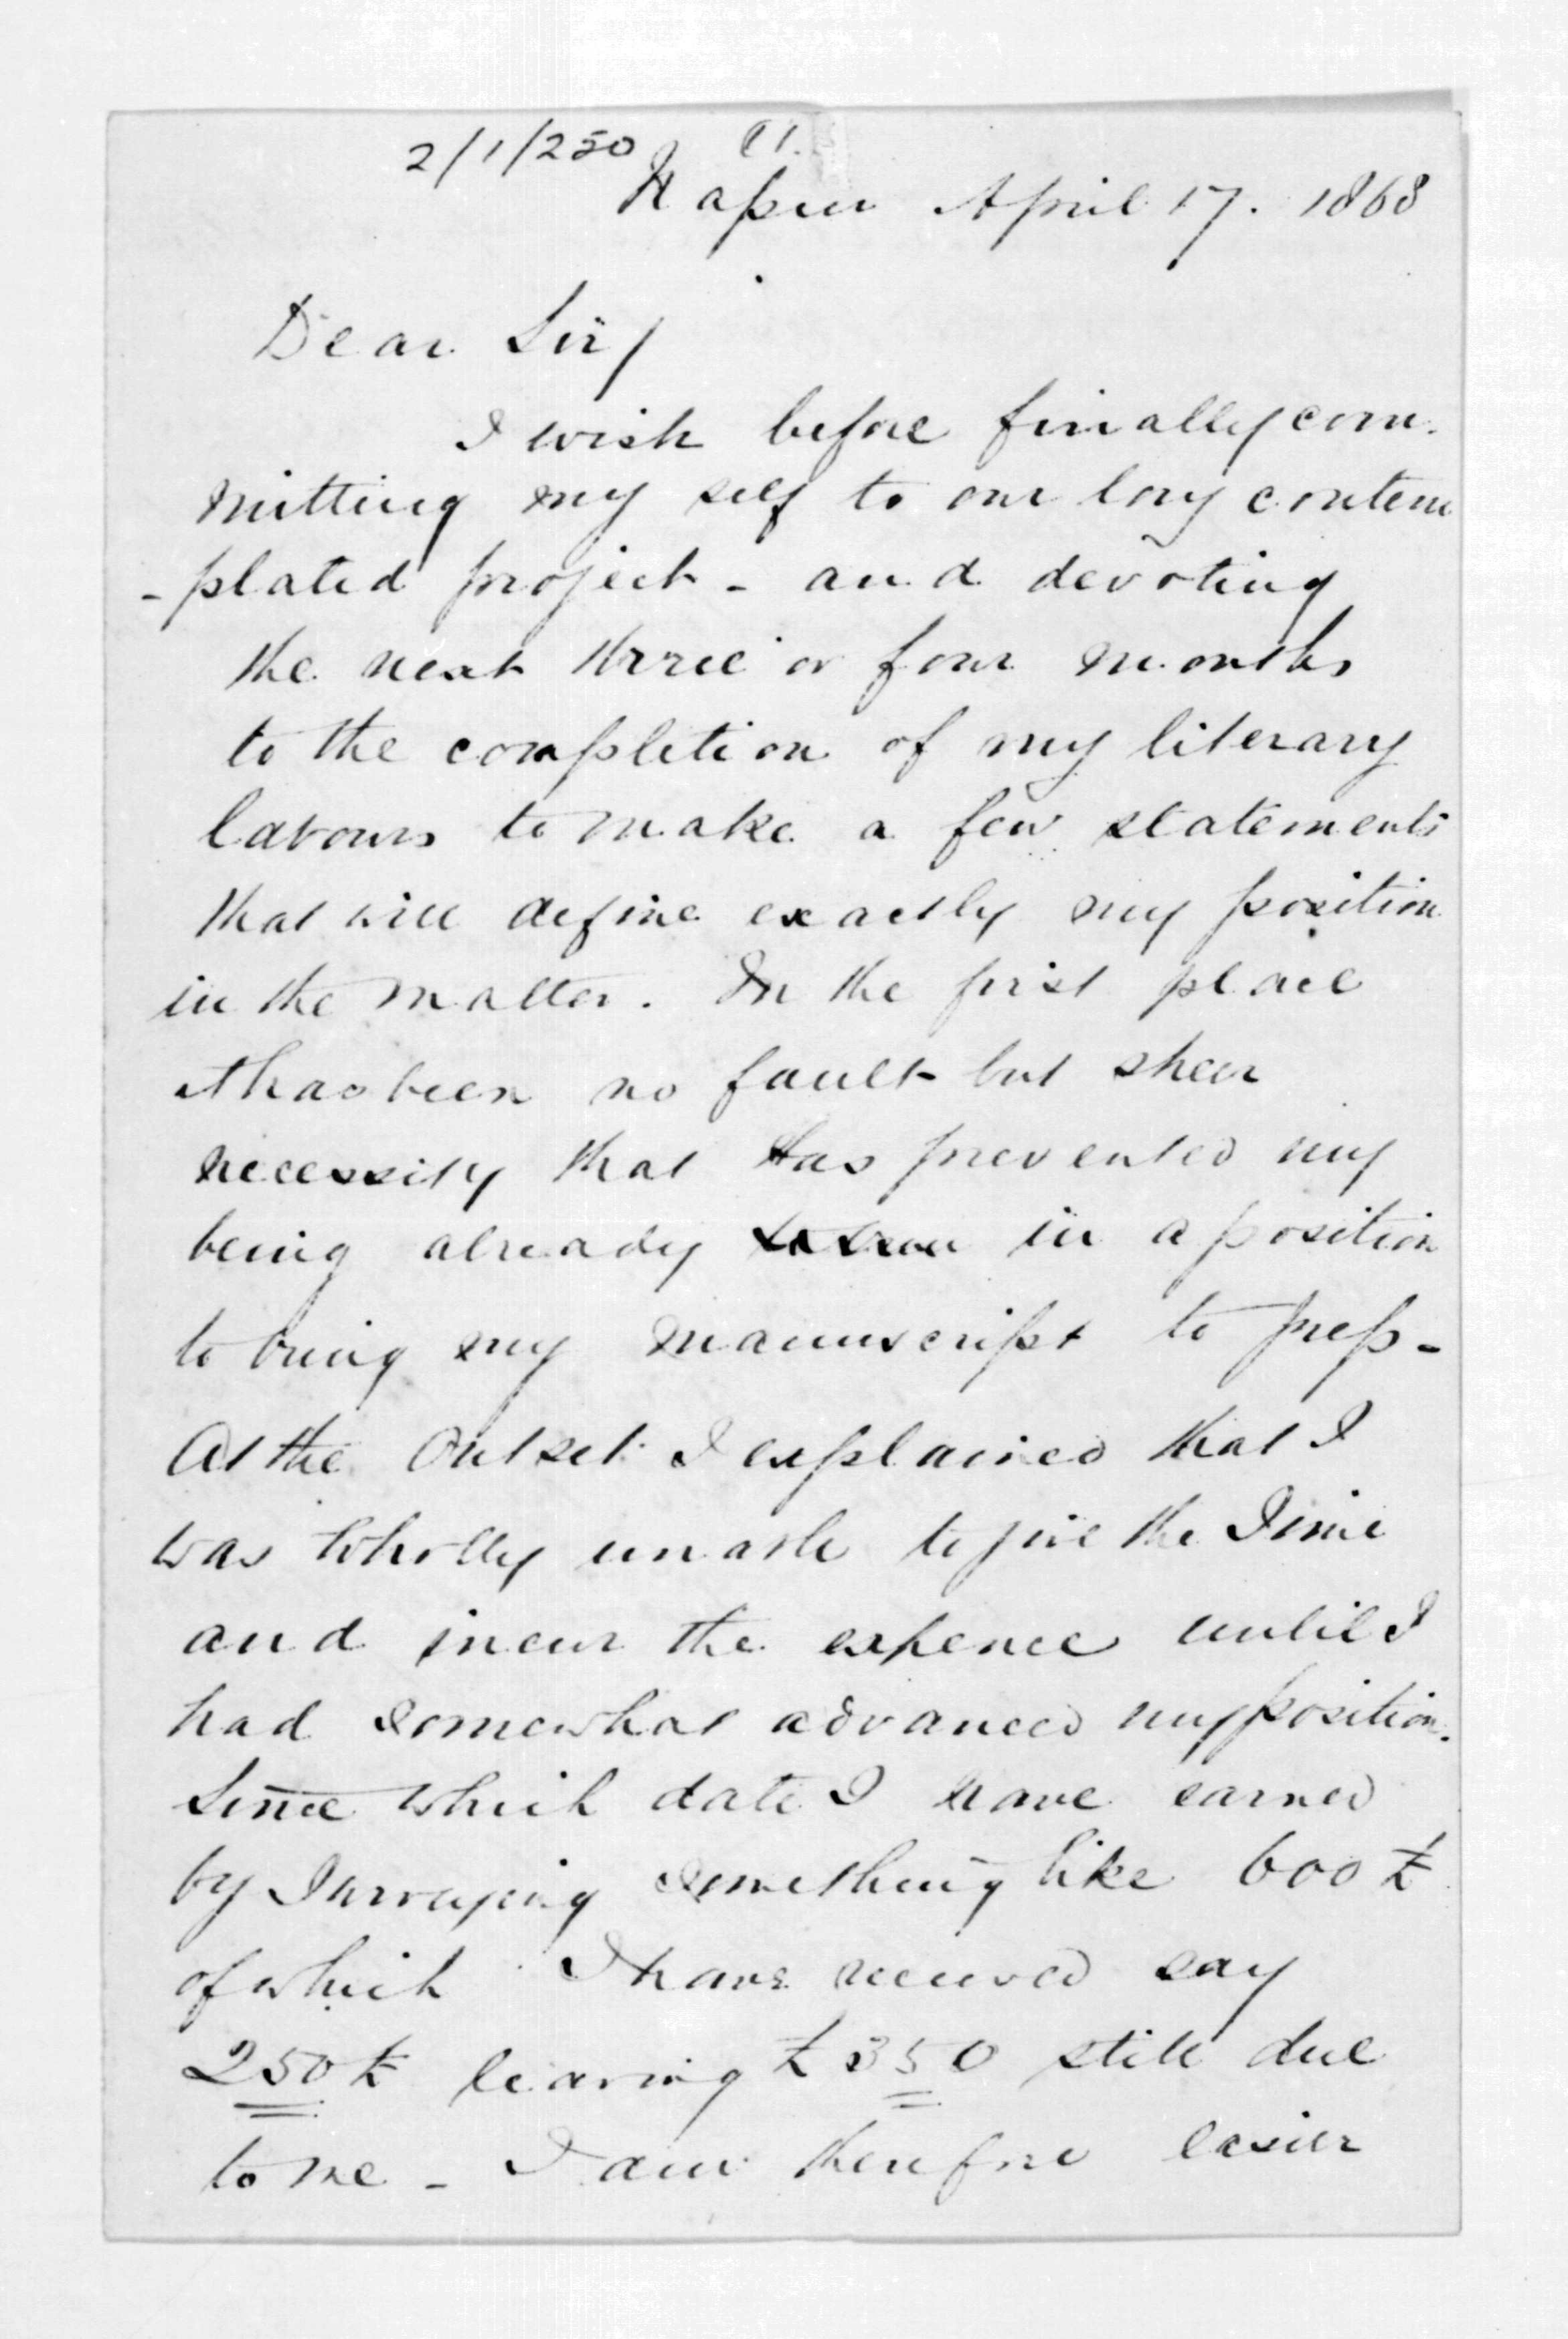 2/1/250
Napier April 17. 1868
Dear Sir/
I wish before finally com-
mitting my self to our long contem
-plated project - and devoting
the next three or four months
to the completion of my literary
labours to make a few statements
that will define exactly my position
in the matter. In the first place
it has been no fault but sheer
necessity that has prevented my
being already in a position
to bring my manuscript to press -
At the outset I explained that I
was wholly unable to give the Time
and incur the expence until I
had somewhat advanced my position.
Since which date I have earned
by Surveying something like 600£
of which I have received say
250£ leaving £350 still due
to me - I am therefore easier